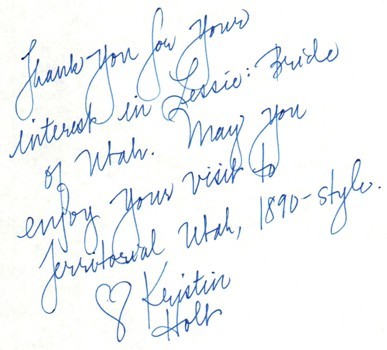 Thank You for Your
interest in Lessie: Bride
of Utah. May You
enjoy Your visit to
Territorial Utah, 1890-style.
♡ Kristin
Holt